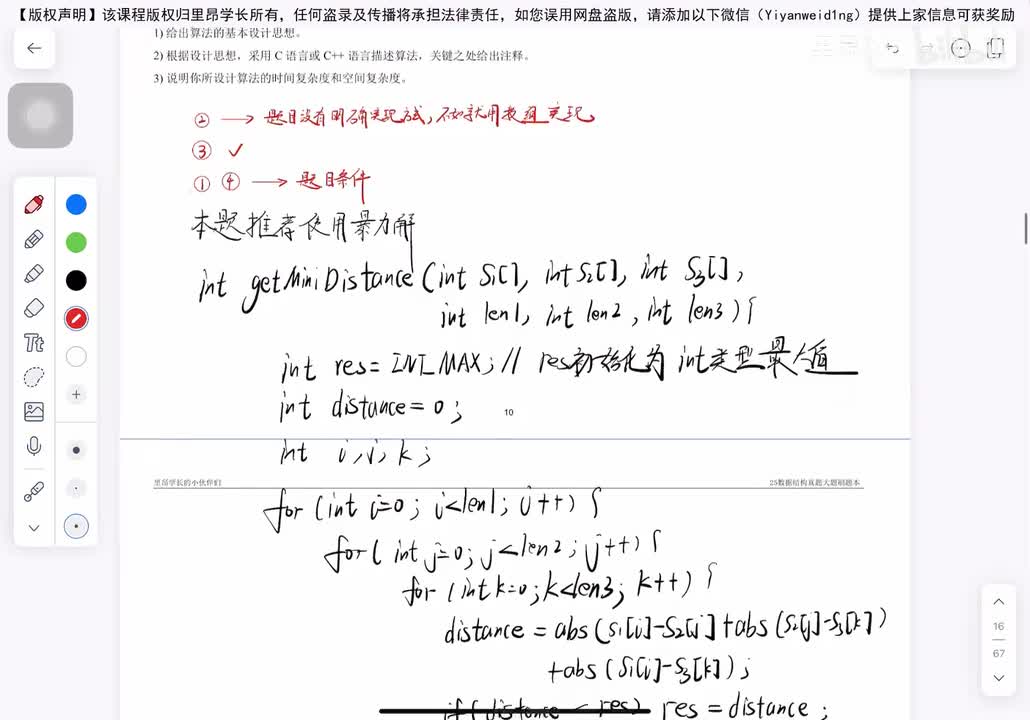 【版权声明】该课程版权归里昂学长所有，任何盗录及传播将承担法律责任，如您误用网盘盗版，请添加以下微信（Yiyanweid1ng）提供上家信息可获奖励
1) 给出算法的基本设计思想。
2) 根据设计思想，采用 C 语言或 C++ 语言描述算法，关键之处给出注释。
3) 说明你所设计算法的时间复杂度和空间复杂度。
② → 题目没有明确实现方式，不如就用数组实现
③ ✓
① ④ → 题目条件
本题推荐使用暴力解
int getMiniDistance (int S1[], int S2[], int S3[],
int len1, int len2, int len3) {
int res = INT_MAX; // res初始化为 int类型最大值
int distance = 0;
10
int i, j, k;
里昂学长的小伙伴们
25数据结构真题大题刷题本
for (int i=0; i<len1; i++) {
for ( int j=0; j<len2; j++) {
for (int k=0; k<len3; k++) {
distance = abs (S1[i]-S2[j] + abs (S2[j]-S3[k])
+abs (S1[i]-S3[k]);
if ( distance < res) res = distance ;
Tt
16
67